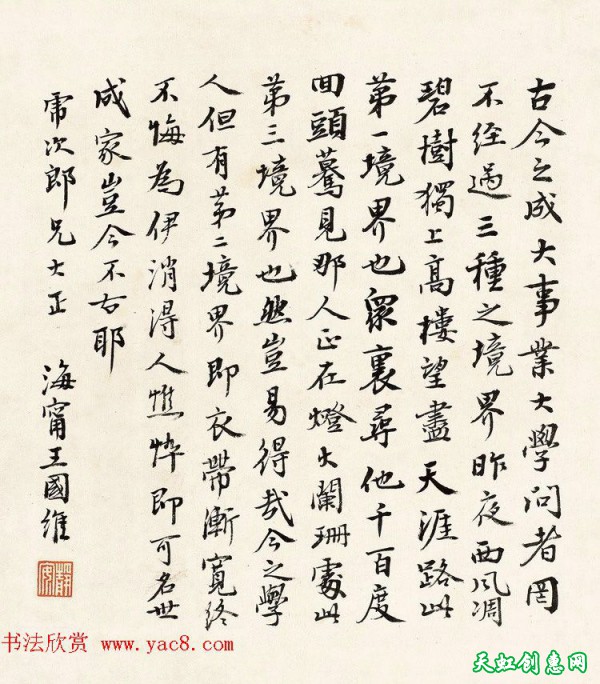 古今之成大事業大學問者罔
不經過三種之境界昨夜西風凋
碧樹獨上高樓望盡天涯路此
第一境界也衆裏尋他千百度
回頭驀見那人正在燈火闌珊處此
第三境界也然豈易得哉今之學
人但有第二境界即衣帶漸寬終
不悔為伊消得人憔悴即可名世
成家豈今不右耶
霈次郎兄大正
海甯王國維
靜安
书法欣赏 www.yac8.com
天虹创惠网